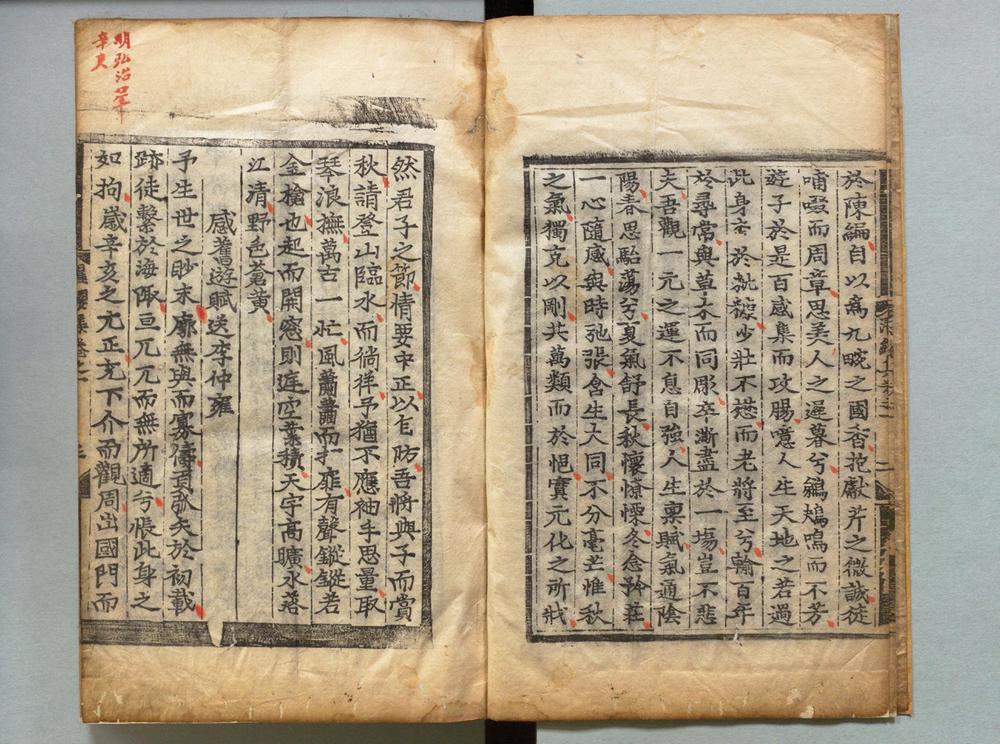 於陳編自以爲九畹之國香抱獻芹之微誠徒
啸啜而周章思美人之遲暮兮鵜鴂鳴而不芳
遊子於是百感集而攻腸意人生天地之若過
此身兮於秕穅少壯不樾而老將至兮輸百年
於尋常與草木而同彫卒澌盡於一塲豈不悲
夫吾觀一元之運不息自強人生禀賦氣通陰
陽春思駘蕩兮夏氣舒長秋懷憭慄冬念矜莊
一心隨感與時弛張含生大同不分毫芒惟秋
之氣獨克以剛共萬類而於悒實元化之所戕
然君子之節情要中正以自防吾將與子而賞
秋請登山臨水而徜徉予猶不應袖手思量取
琴浪撫萬古一忙風蕭蕭而打扉有聲鏦鏦若
金搶也起而開窓則庭空葉積天宇高曠水落
江清野色蒼黄
感舊遊賦送李仲雍
予生世之眇末廓無與而寡儔頁弧矢於初載
跡徒繫於海陬亘兀兀而無所適兮悵此身之
如拘歲辛亥之亢正充下介而觀周出國門而
明弘治四年
辛亥